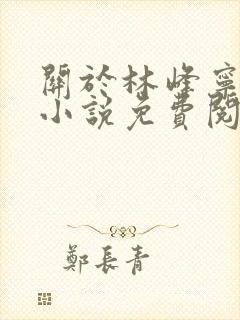 關於林峰寧
小說免費閱
鄭長青